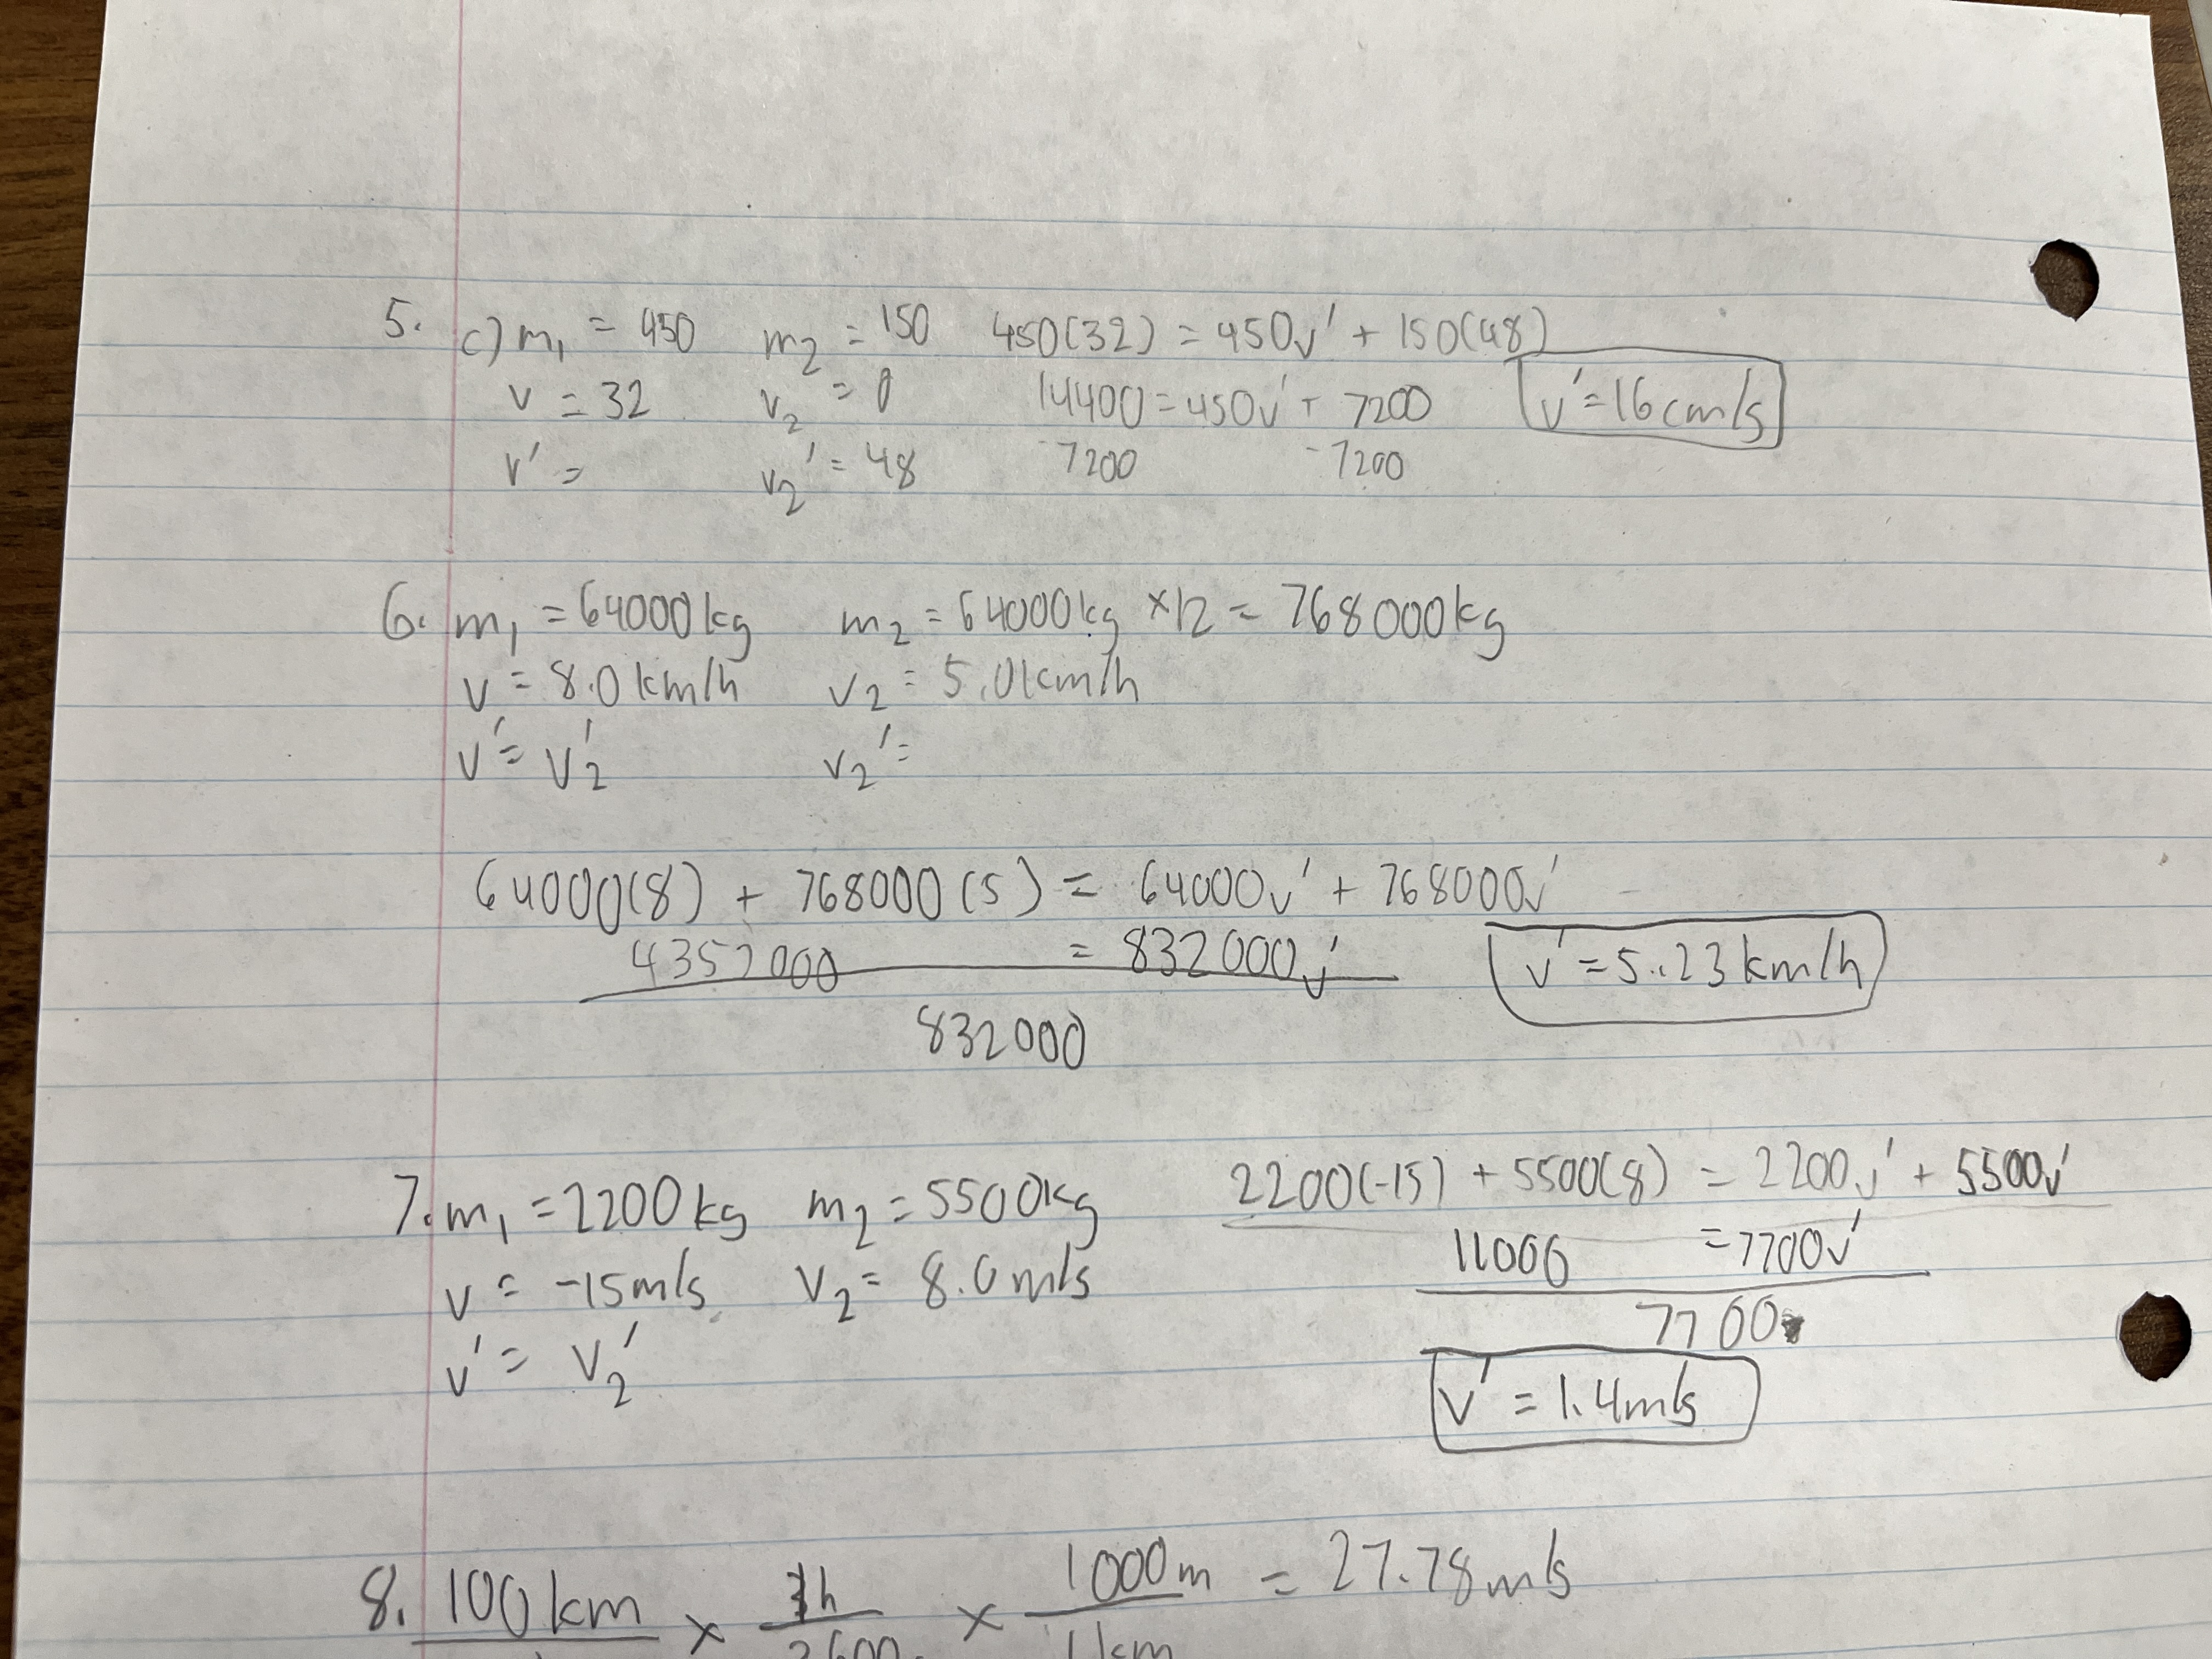 5. c) m₁ = 450 m₂ = 150 450(32) = 450v' + 150(48)
v = 32 v₂ = 0 14400 = 450v' + 7200 v' = 16cm/s
v' = v₂' = 48 -7200 -7200
6. m₁ = 64000kg m₂ = 64000kg ×12 = 768000kg
v = 8.0km/h v₂ = 5.0km/h
v' = v₂' v₂' =
64000(8) + 768000(5) = 64000v' + 768000v'
4352000 = 832000v' v' = 5.23km/h
832000
7. m₁ = 2200kg m₂ = 5500kg 2200(-15) + 5500(8) = 2200v' + 5500v'
v = -15m/s v₂ = 8.0m/s 11000 = 7700v'
7700
v' = v₂' v' = 1.4m/s
8. 100km × 1h × 1000m = 27.78m/s
3600 1km